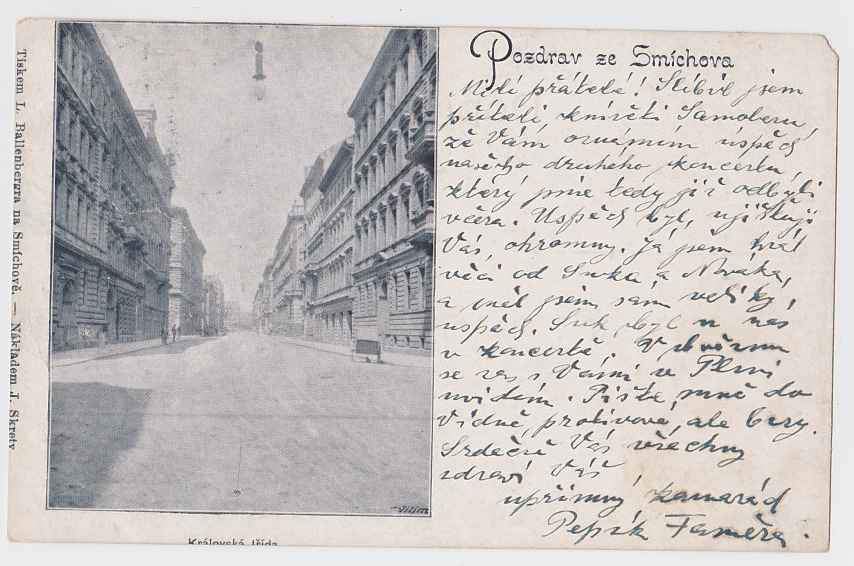 Pozdrav ze Smíchova
Milí přátelé! Slíbil jsem
příteli knížeti Samoberu,
že Vám oznámím úspěch
našeho druhého koncertu,
který jsme tedy již odbyli
včera. Úspěch byl, ujišťuji
Vás, ohromný. Já jsem hrál
věci od Suka a Nováka,
a měl jsem sám veliký
úspěch. Suk byl u nás
v koncertě. V březnu
se zas s Vámi v Plzni
uvidím. Pište mně do
Vídně, ale brzy.
Srdečně Vás všechny
zdraví Váš
upřímný kamarád
Pepík
Tiskem L. Ballenbergra na Smíchově. — Nákladem J. Skrety
Královská třída